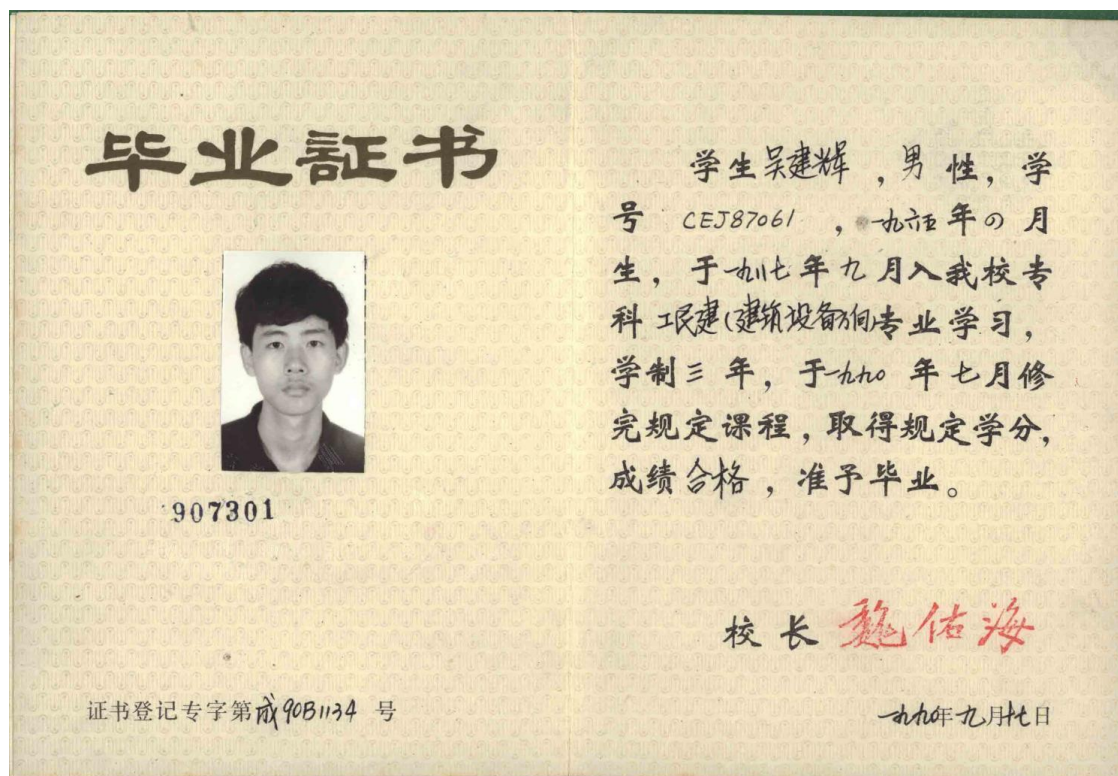 毕业証书
907301
证书登记专字第成90B1134 号
学生吴建辉，男性，学
号 CEJ87061 ，一九六五年四月
生，于一九八七年九月入我校专
科 工民建(建筑设备方向)专业学习，
学制三年，于一九九〇年七月修
完规定课程，取得规定学分，
成绩合格，准予毕业。
校长 魏佑海
一九九〇年九月十七日